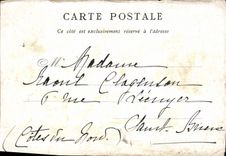 CARTE POSTALE
Ce côté est exclusivement réservé à l'adresse
Madame
Raoul
6 rue
Saint-Brieuc
(Côtes du Nord)